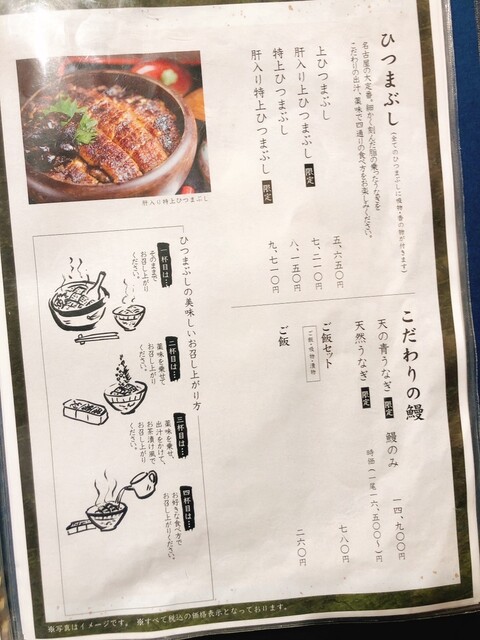 ひつまぶし(全てのひつまぶしに吸物・香の物が付きます)
名古屋の大定番。細かく刻んだ脂の乗ったうなぎを
こだわりの出汁、薬味で四通りの食べ方をお楽しみください。
上ひつまぶし 五、六五〇円
肝入り上ひつまぶし 限定 七、二一〇円
特上ひつまぶし 八、一五〇円
肝入り特上ひつまぶし 限定 九、七一〇円
肝入り特上ひつまぶし
こだわりの鰻
天の青うなぎ 限定 鰻のみ 一四、九〇〇円
天然うなぎ 限定 時価(一尾一六、五〇〇〜)円
ご飯セット ご飯・吸物・漬物 七八〇円
ご飯 二六〇円
ひつまぶしの美味しいお召し上がり方
一杯目は…
そのままで
お召し上がり
ください。
二杯目は…
薬味を乗せて
お召し上がり
ください。
三杯目は…
薬味を乗せ、
出汁をかけて、
お茶漬け風で
お召し上がり
ください。
四杯目は…
お好きな食べ方で
お召し上がり
ください。
※写真はイメージです。 ※すべて税込の価格表示となっております。